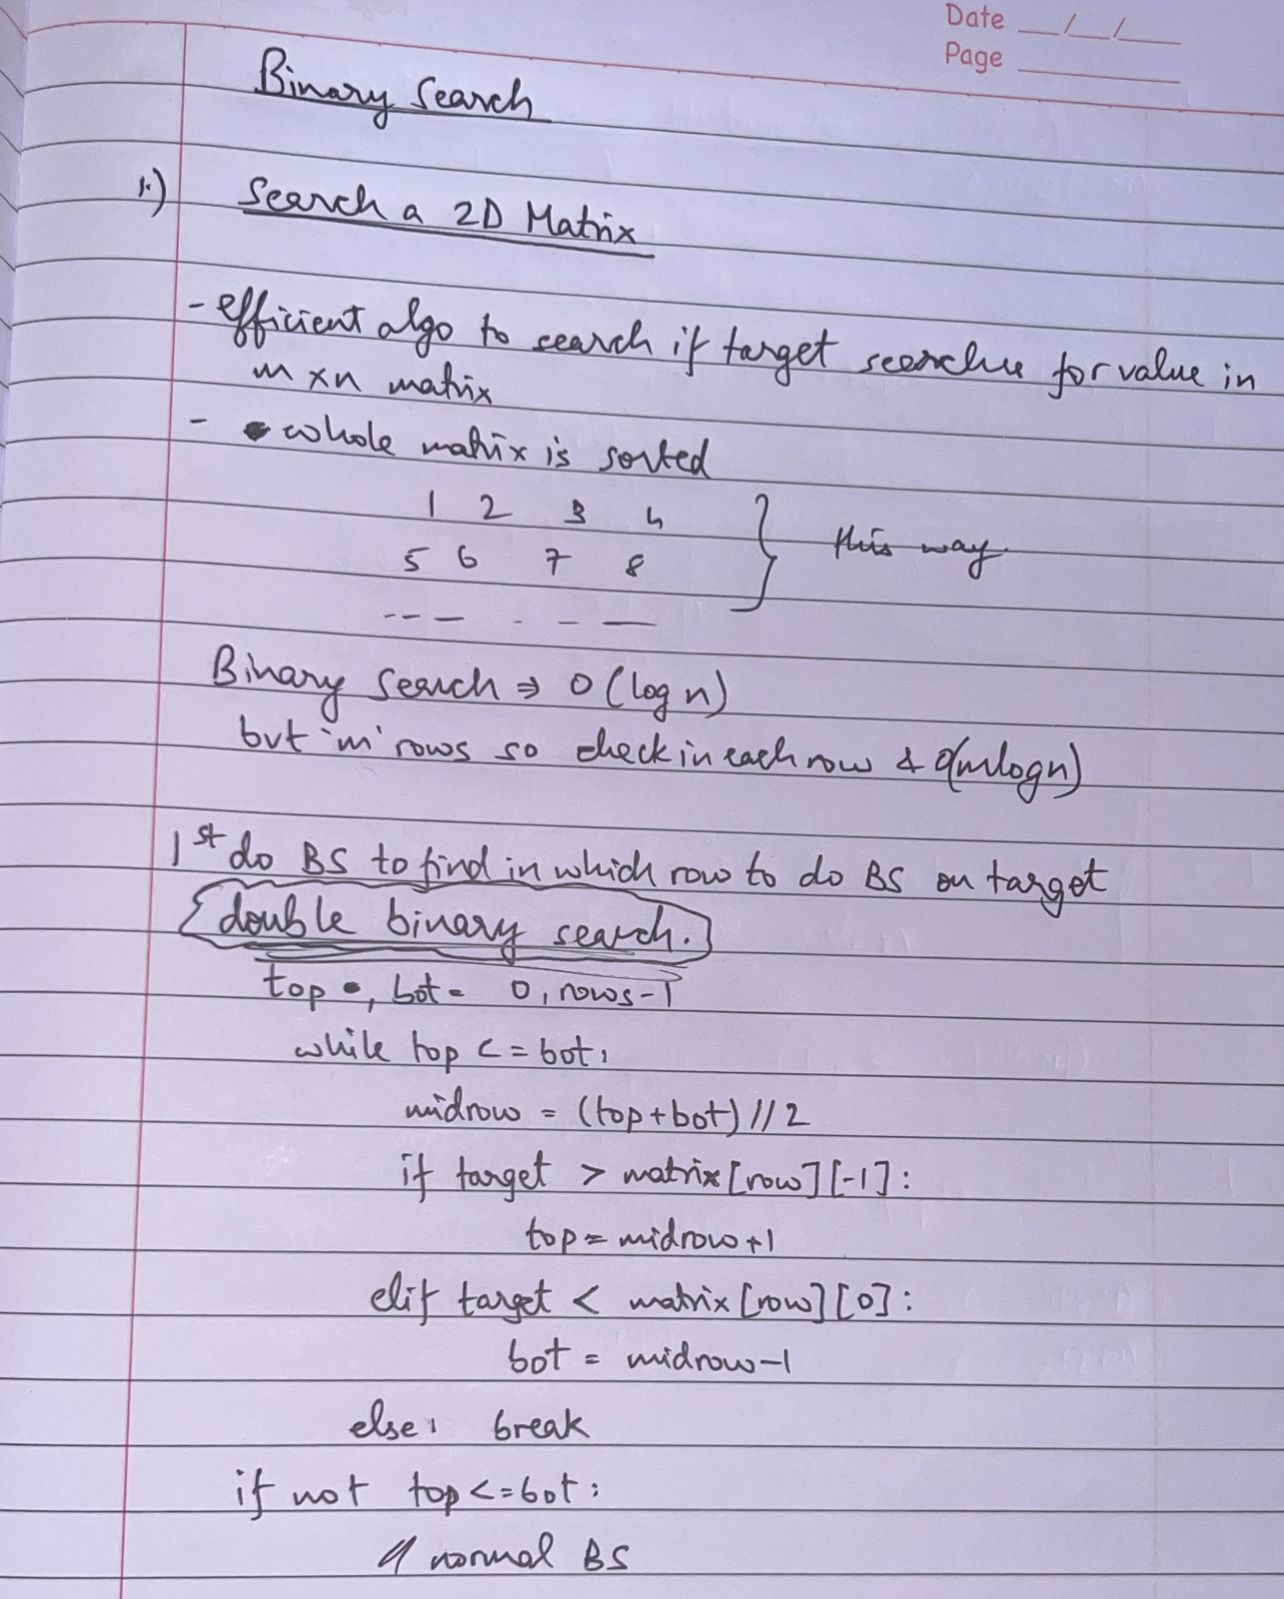 Date __/__/__
Page ______
Binary Search
1.) Search a 2D Matrix
- efficient algo to search if target for value in
m x n matrix
- whole matrix is sorted
1 2 3 4
5 6 7 8 } this way
-- — . - —
Binary Search ⇒ O(log n)
but 'm' rows so check in each row & O(mlogn)
1st do BS to find in which row to do BS on target
{double binary search.}
top, bot = 0, rows-1
while top <= bot:
midrow = (top+bot)//2
if target > matrix[row][-1]:
top = midrow+1
elif target < matrix[row][0]:
bot = midrow-1
else: break
if not top <= bot:
normal BS